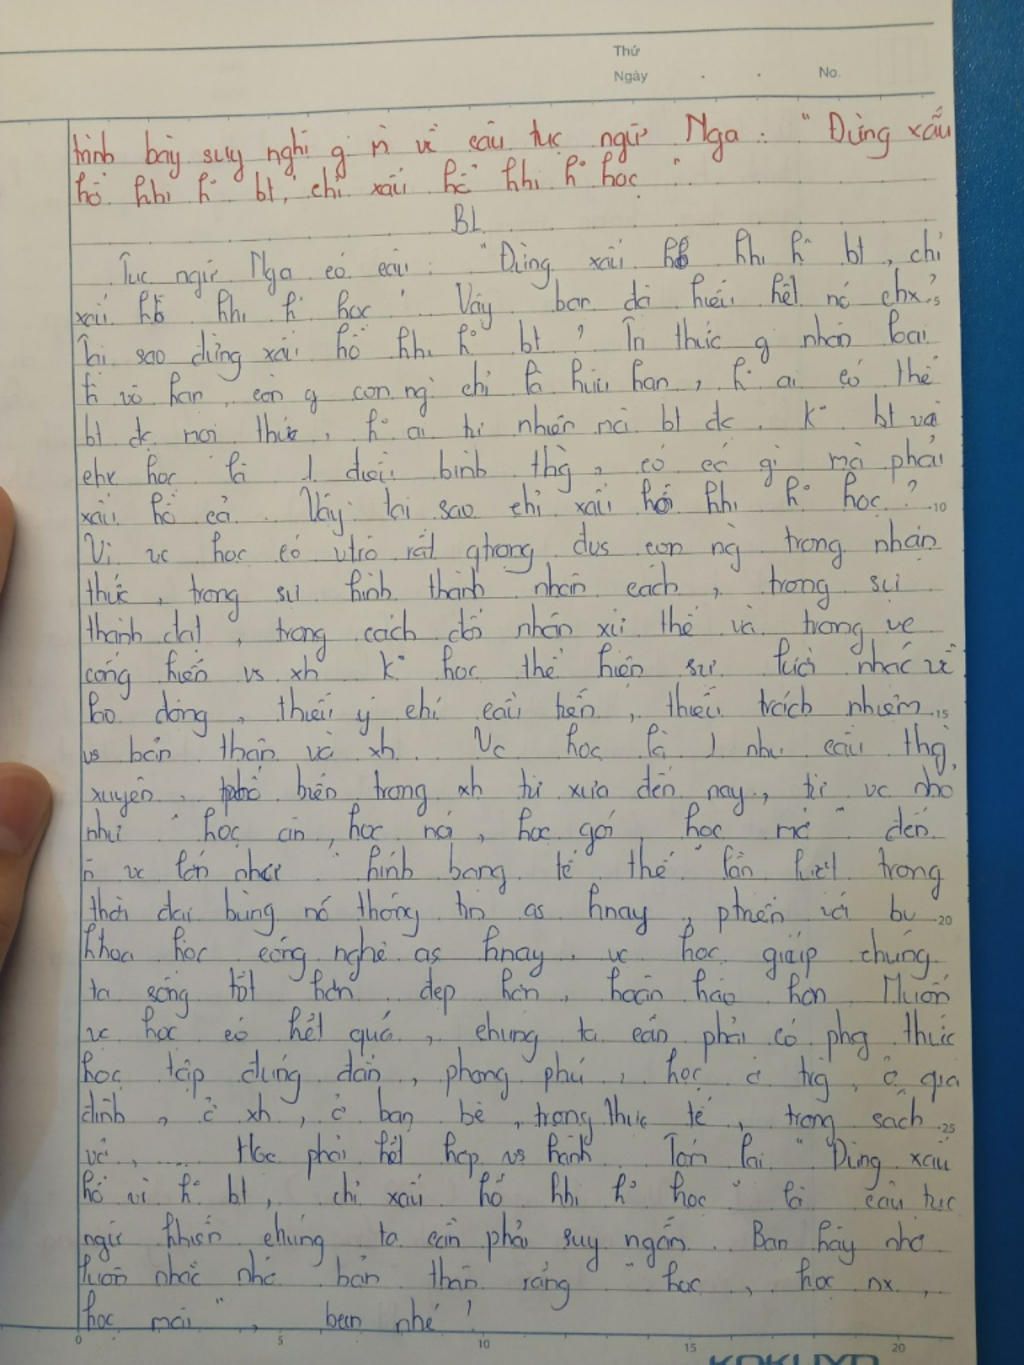 Thứ
Ngày . . No.
trình bày suy nghĩ g m về câu tục ngữ Nga : " Đừng xấu
hổ khi k° bt, chỉ xấu hổ khi k° học "
BL
Tục ngữ Nga có câu : " Đừng xấu hổ khi k° bt, chỉ
xấu hổ khi k° học " Vậy bạn đã hiểu hết nó chx.
Tại sao đừng xấu hổ khi k° bt ? Tri thức g nhân loại
là vô hạn, còn g con ng` chỉ là hữu hạn, k° ai có thể
bt đc mọi thứ, k° ai tự nhiên mà bt đc. K° bt vì
chx học là 1 điều bình thg, có cé gì mà phải
xấu hổ cả. Vậy tại sao chỉ xấu hổ khi k° học ?
Vì vc học có vtrò rất qtrong đvs con ng` trong nhận
thức, trong sự hình thành nhân cách, trong sự
thành đạt, trong cách đối nhân xử thế và trong vc
cống hiến vs xh K° học thể hiện sự lười nhác về
lao động, thiếu ý chí cầu tiến, thiếu trách nhiệm
vs bản thân và xh. Vc học là 1 nhu cầu thg`
xuyên, phổ biến trong xh từ xưa đến nay, từ vc nhỏ
như " học ăn, học nói, học gói, học mở " đến
n vc lớn như " kinh bang tế thế " lẫn trong
thời đại bùng nổ thông tin as hnay, ptriển với
khoa học công nghệ as hnay, vc học giúp chúng
ta sống tốt hơn đẹp hơn, hoàn hảo hơn Muốn
vc học có kết quả, chúng ta cần phải có phg thức
học tập đúng đắn, phong phú, học ở trg, ở gia
đình, ở xh, ở bạn bè, trong thực tế, trong sách
vở, ..... Học phải kết hợp vs hành Tóm lại " Đừng xấu
hổ vì k° bt, chỉ xấu hổ khi k° học " là câu tục
ngữ khiến chúng ta cần phải suy ngẫm. Bạn hãy nhớ
luôn nhắc nhở bản thân rằng " học, học nx,
học mãi ", bạn nhé !
5
10
15
20
25
0 5 10 15 20
KOKUYO